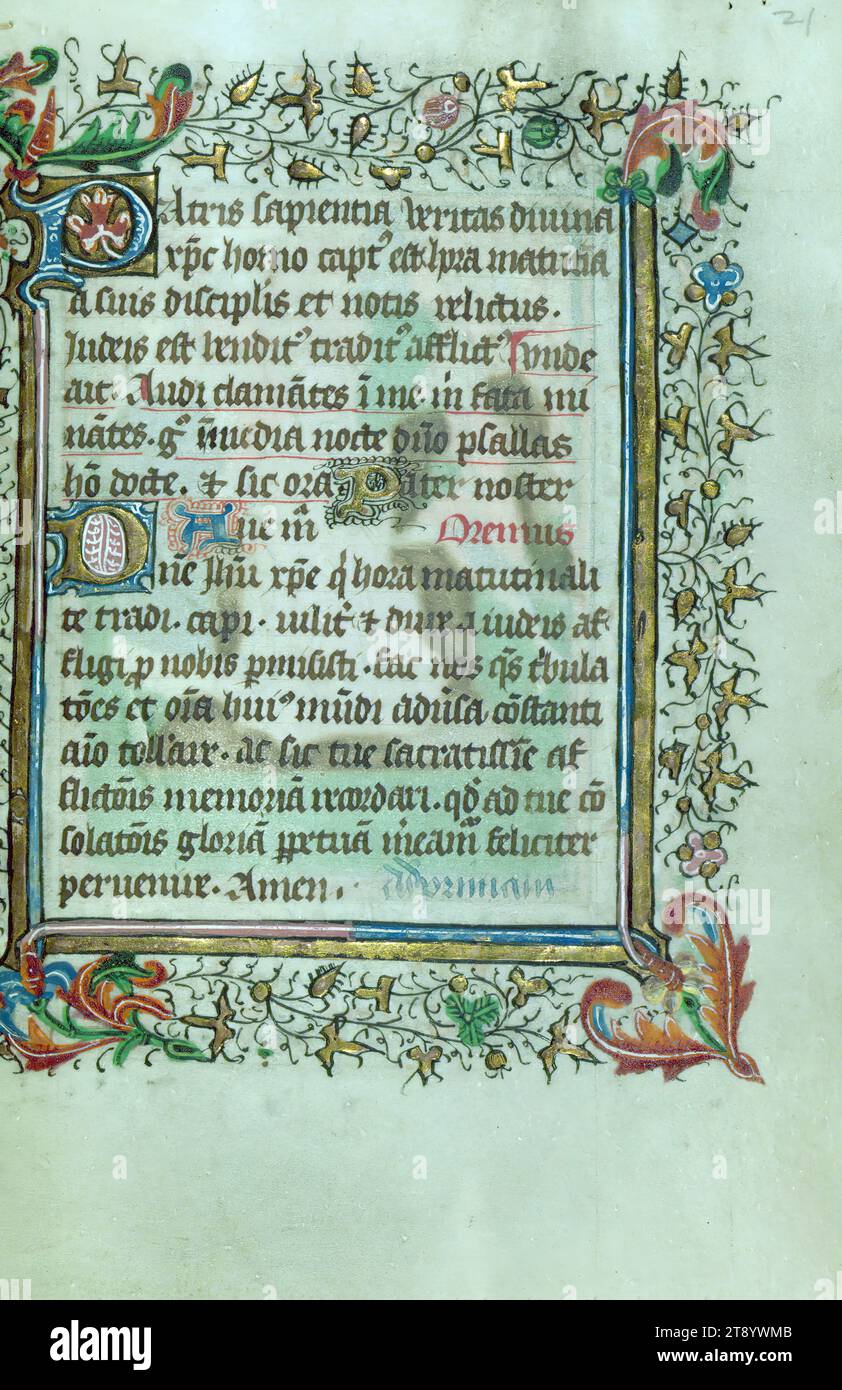 21
Patris sapientia veritas divina
xp̄c homo captꝰ est hora matutina
a suis disciplis et notis relictus.
Judeis est venditꝰ traditꝰ afflictꝰ Vnde
ait. Audi clamātes ī me.
nātes. gͦ īmedia nocte dn̄o psallas
hō docte. & sic ora Pater noster
Aue m̄ Oremus
Dn̄e Jhū xp̄e q̄ hora matutinali
te tradi. capi. & dure a iudeis af
fligi p nobis pmisisti. fac nos q̄s tbula
tōes et oīa huiꝰ mūdi adūsa cōstanti
aīo tollare. ac sic tue sacratissīe af
flictōis memoriā recordari. qd̄ ad tue cō
solatōis gloriā ppetuā feliciter
peruenire. Amen.
alamy
Image ID: 2T8YWMB
www.alamy.com